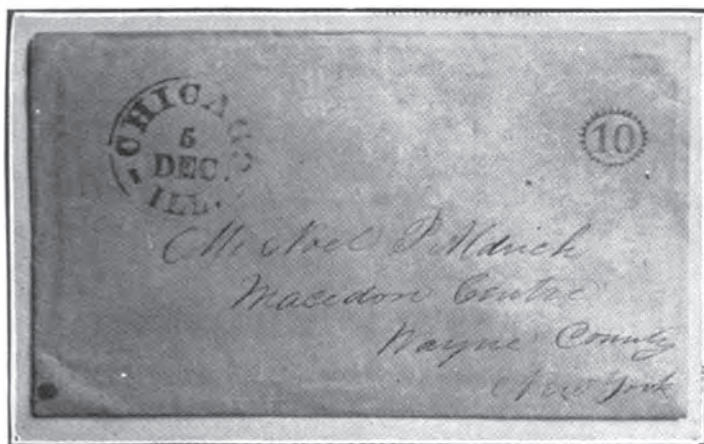 CHICAGO
5
DEC.
ILL.
10
Mr Noel P Aldrich
Macedon Centre
Wayne County
New York